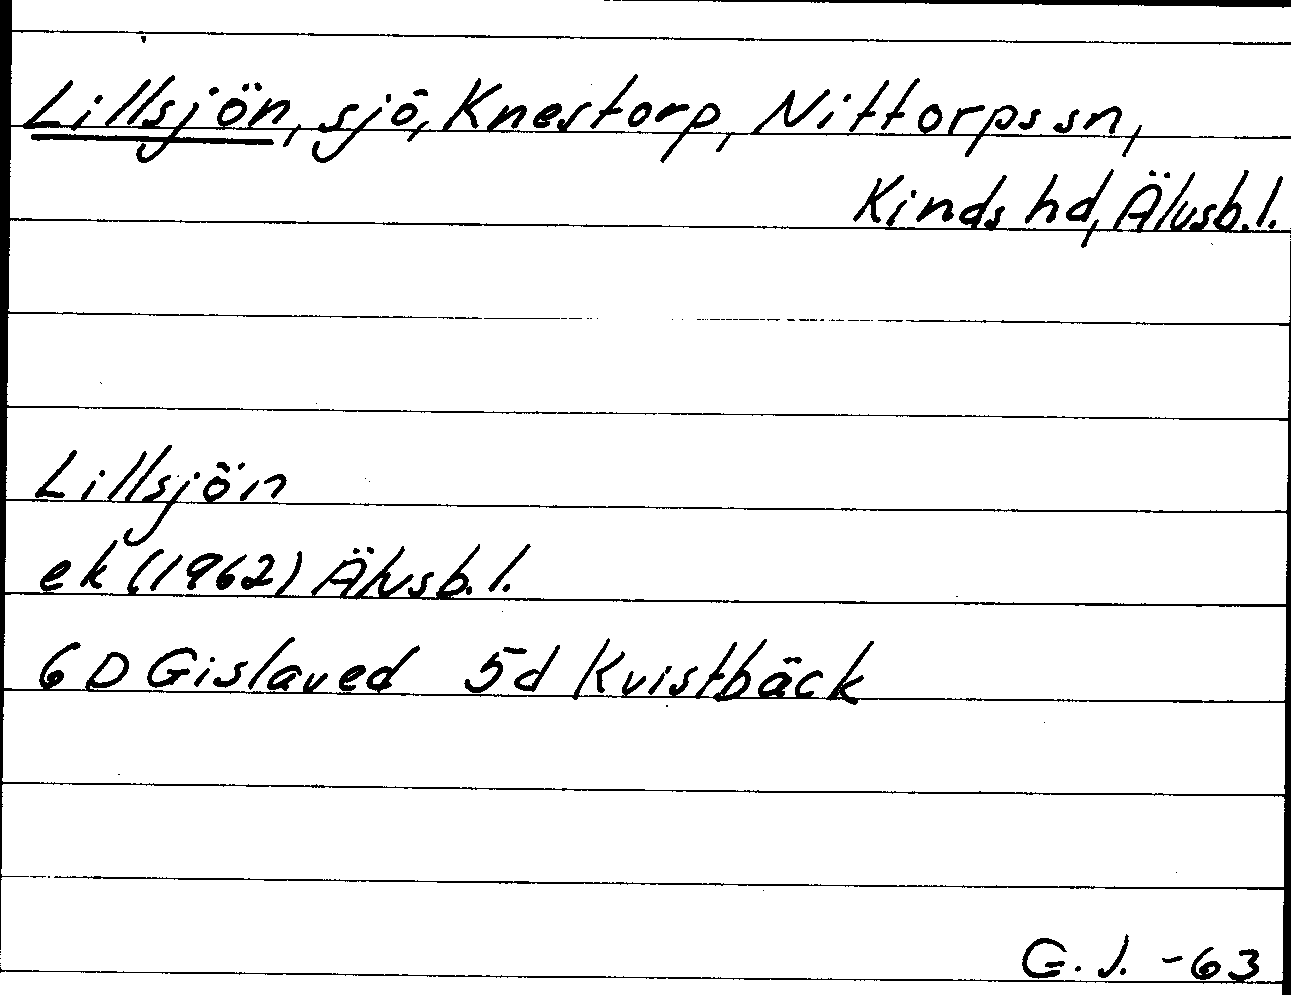 Lillsjön, sjö, Knestorp, Nittorps sn,
Kinds hd, Älvsb. l.
Lillsjön
ek (1962) Älvsb. l.
6 D Gislaved 5d Kvistbäck
G. J. -63